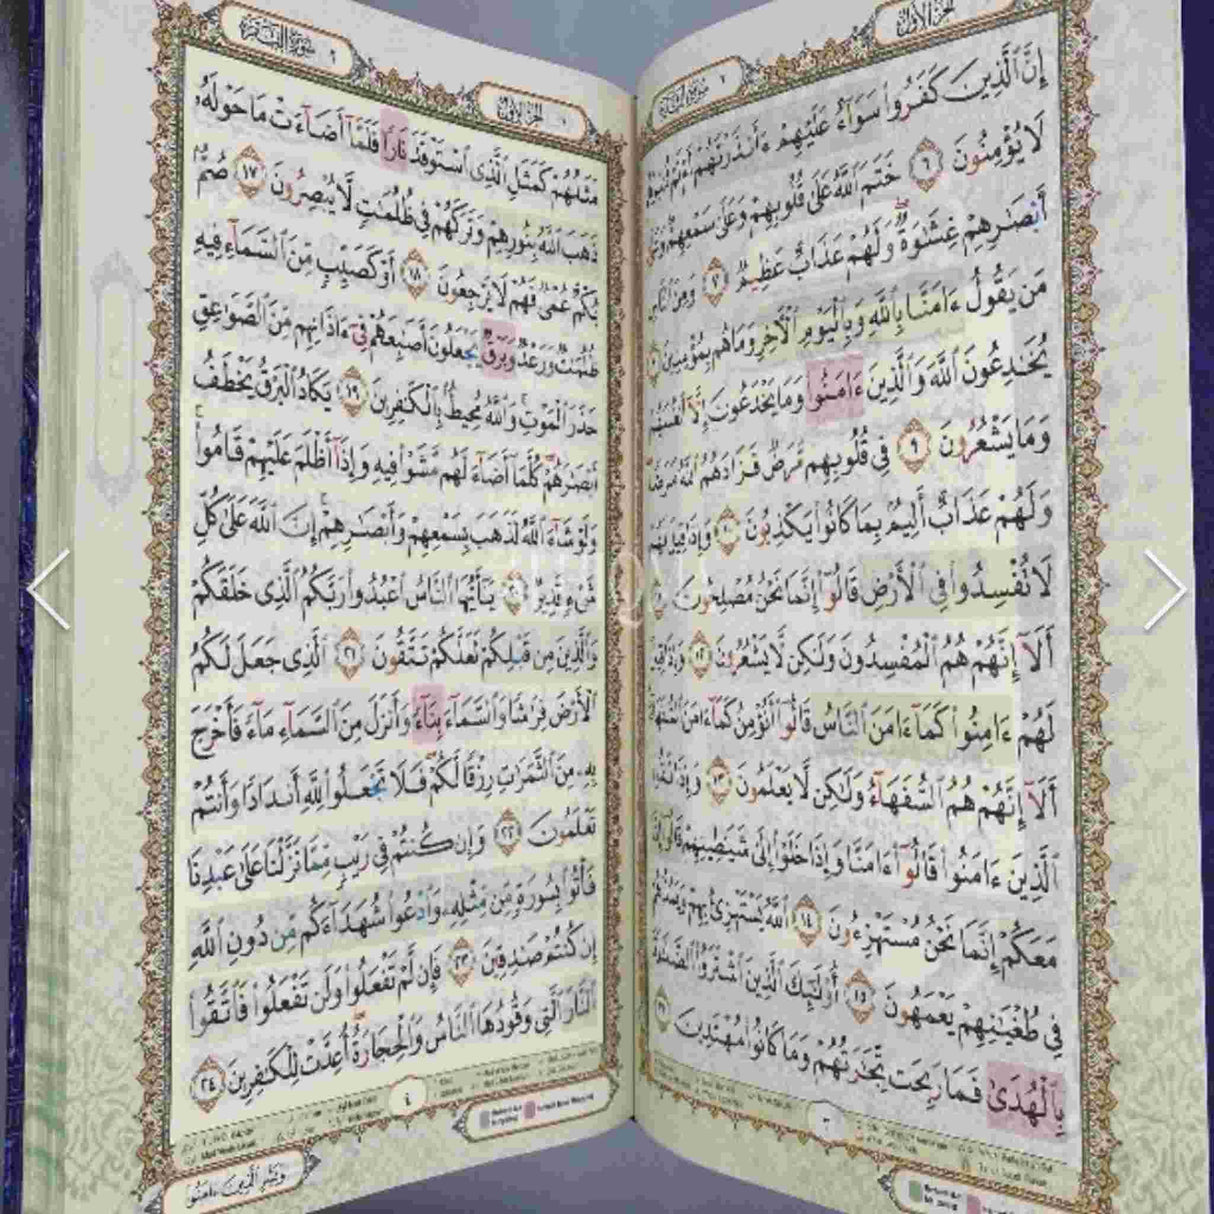 الجزء الأول
إِنَّ ٱلَّذِينَ كَفَرُوا۟ سَوَآءٌ عَلَيْهِمْ ءَأَنذَرْتَهُمْ أَمْ لَمْ
لَا يُؤْمِنُونَ ٦ خَتَمَ ٱللَّهُ عَلَىٰ قُلُوبِهِمْ وَعَلَىٰ سَمْعِهِمْ
أَبْصَـٰرِهِمْ غِشَـٰوَةٌ وَلَهُمْ عَذَابٌ عَظِيمٌ ٧ وَمِنَ ٱلنَّاسِ
مَن يَقُولُ ءَامَنَّا بِٱللَّهِ وَبِٱلْيَوْمِ ٱلْـَٔاخِرِ وَمَا هُم بِمُؤْمِنِينَ
يُخَـٰدِعُونَ ٱللَّهَ وَٱلَّذِينَ ءَامَنُوا۟ وَمَا يَخْدَعُونَ إِلَّآ أَنفُسَهُمْ
وَمَا يَشْعُرُونَ ٩ فِى قُلُوبِهِم مَّرَضٌ فَزَادَهُمُ ٱللَّهُ مَرَضًا
وَلَهُمْ عَذَابٌ أَلِيمٌۢ بِمَا كَانُوا۟ يَكْذِبُونَ ١٠ وَإِذَا قِيلَ لَهُمْ
لَا تُفْسِدُوا۟ فِى ٱلْأَرْضِ قَالُوٓا۟ إِنَّمَا نَحْنُ مُصْلِحُونَ
أَلَآ إِنَّهُمْ هُمُ ٱلْمُفْسِدُونَ وَلَـٰكِن لَّا يَشْعُرُونَ ١٢ وَإِذَا قِيلَ
لَهُمْ ءَامِنُوا۟ كَمَآ ءَامَنَ ٱلنَّاسُ قَالُوٓا۟ أَنُؤْمِنُ كَمَآ ءَامَنَ ٱلسُّفَهَآءُ
أَلَآ إِنَّهُمْ هُمُ ٱلسُّفَهَآءُ وَلَـٰكِن لَّا يَعْلَمُونَ ١٣ وَإِذَا لَقُوا۟
ٱلَّذِينَ ءَامَنُوا۟ قَالُوٓا۟ ءَامَنَّا وَإِذَا خَلَوْا۟ إِلَىٰ شَيَـٰطِينِهِمْ قَالُوٓا۟ إِنَّا
مَعَكُمْ إِنَّمَا نَحْنُ مُسْتَهْزِءُونَ ١٤ ٱللَّهُ يَسْتَهْزِئُ بِهِمْ وَيَمُدُّهُمْ
فِى طُغْيَـٰنِهِمْ يَعْمَهُونَ ١٥ أُو۟لَـٰٓئِكَ ٱلَّذِينَ ٱشْتَرَوُا۟ ٱلضَّلَـٰلَةَ
بِٱلْهُدَىٰ فَمَا رَبِحَت تِّجَـٰرَتُهُمْ وَمَا كَانُوا۟ مُهْتَدِينَ
٣
سورة البقرة ٢
الجزء الأول
مَثَلُهُمْ كَمَثَلِ ٱلَّذِى ٱسْتَوْقَدَ نَارًا فَلَمَّآ أَضَآءَتْ مَا حَوْلَهُۥ
ذَهَبَ ٱللَّهُ بِنُورِهِمْ وَتَرَكَهُمْ فِى ظُلُمَـٰتٍ لَّا يُبْصِرُونَ ١٧ صُمٌّۢ
بُكْمٌ عُمْىٌ فَهُمْ لَا يَرْجِعُونَ ١٨ أَوْ كَصَيِّبٍ مِّنَ ٱلسَّمَآءِ فِيهِ
ظُلُمَـٰتٌ وَرَعْدٌ وَبَرْقٌ يَجْعَلُونَ أَصَـٰبِعَهُمْ فِىٓ ءَاذَانِهِم مِّنَ ٱلصَّوَٰعِقِ
حَذَرَ ٱلْمَوْتِ ۚ وَٱللَّهُ مُحِيطٌۢ بِٱلْكَـٰفِرِينَ ١٩ يَكَادُ ٱلْبَرْقُ يَخْطَفُ
أَبْصَـٰرَهُمْ كُلَّمَآ أَضَآءَ لَهُم مَّشَوْا۟ فِيهِ وَإِذَآ أَظْلَمَ عَلَيْهِمْ قَامُوا۟ ۚ
وَلَوْ شَآءَ ٱللَّهُ لَذَهَبَ بِسَمْعِهِمْ وَأَبْصَـٰرِهِمْ ۚ إِنَّ ٱللَّهَ عَلَىٰ كُلِّ
شَىْءٍ قَدِيرٌ ٢٠ يَـٰٓأَيُّهَا ٱلنَّاسُ ٱعْبُدُوا۟ رَبَّكُمُ ٱلَّذِى خَلَقَكُمْ
وَٱلَّذِينَ مِن قَبْلِكُمْ لَعَلَّكُمْ تَتَّقُونَ ٢١ ٱلَّذِى جَعَلَ لَكُمُ
ٱلْأَرْضَ فِرَٰشًا وَٱلسَّمَآءَ بِنَآءً وَأَنزَلَ مِنَ ٱلسَّمَآءِ مَآءً فَأَخْرَجَ
بِهِۦ مِنَ ٱلثَّمَرَٰتِ رِزْقًا لَّكُمْ فَلَا تَجْعَلُوا۟ لِلَّهِ أَندَادًا وَأَنتُمْ
تَعْلَمُونَ ٢٢ وَإِن كُنتُمْ فِى رَيْبٍ مِّمَّا نَزَّلْنَا عَلَىٰ عَبْدِنَا
فَأْتُوا۟ بِسُورَةٍ مِّن مِّثْلِهِۦ وَٱدْعُوا۟ شُهَدَآءَكُم مِّن دُونِ ٱللَّهِ
إِن كُنتُمْ صَـٰدِقِينَ ٢٣ فَإِن لَّمْ تَفْعَلُوا۟ وَلَن تَفْعَلُوا۟ فَٱتَّقُوا۟
ٱلنَّارَ ٱلَّتِى وَقُودُهَا ٱلنَّاسُ وَٱلْحِجَارَةُ أُعِدَّتْ لِلْكَـٰفِرِينَ ٢٤
٤
وَبَشِّرِ ٱلَّذِينَ ءَامَنُوا۟